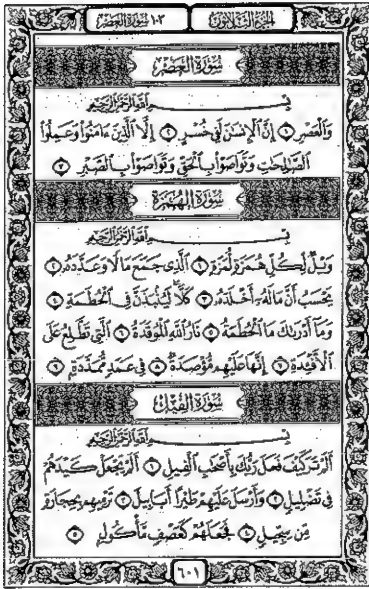 الجزء الثلاثون
١٠٣ سورة العصر
سورة العصر
بِسْمِ اللَّهِ الرَّحْمَٰنِ الرَّحِيمِ
وَالْعَصْرِ ١ إِنَّ الْإِنسَٰنَ لَفِي خُسْرٍ ٢ إِلَّا الَّذِينَ ءَامَنُوا وَعَمِلُوا
الصَّٰلِحَٰتِ وَتَوَاصَوْا بِالْحَقِّ وَتَوَاصَوْا بِالصَّبْرِ ٣
سورة الهمزة
بِسْمِ اللَّهِ الرَّحْمَٰنِ الرَّحِيمِ
وَيْلٌ لِّكُلِّ هُمَزَةٍ لُّمَزَةٍ ١ الَّذِي جَمَعَ مَالًا وَعَدَّدَهُ ٢
يَحْسَبُ أَنَّ مَالَهُ أَخْلَدَهُ ٣ كَلَّا لَيُنۢبَذَنَّ فِي الْحُطَمَةِ ٤
وَمَا أَدْرَىٰكَ مَا الْحُطَمَةُ ٥ نَارُ اللَّهِ الْمُوقَدَةُ ٦ الَّتِي تَطَّلِعُ عَلَى
الْأَفْـِٔدَةِ ٧ إِنَّهَا عَلَيْهِم مُّؤْصَدَةٌ ٨ فِي عَمَدٍ مُّمَدَّدَةٍ ٩
سورة الفيل
بِسْمِ اللَّهِ الرَّحْمَٰنِ الرَّحِيمِ
أَلَمْ تَرَ كَيْفَ فَعَلَ رَبُّكَ بِأَصْحَٰبِ الْفِيلِ ١ أَلَمْ يَجْعَلْ كَيْدَهُمْ
فِي تَضْلِيلٍ ٢ وَأَرْسَلَ عَلَيْهِمْ طَيْرًا أَبَابِيلَ ٣ تَرْمِيهِم بِحِجَارَةٍ
مِّن سِجِّيلٍ ٤ فَجَعَلَهُمْ كَعَصْفٍ مَّأْكُولٍ ٥
٦٠١